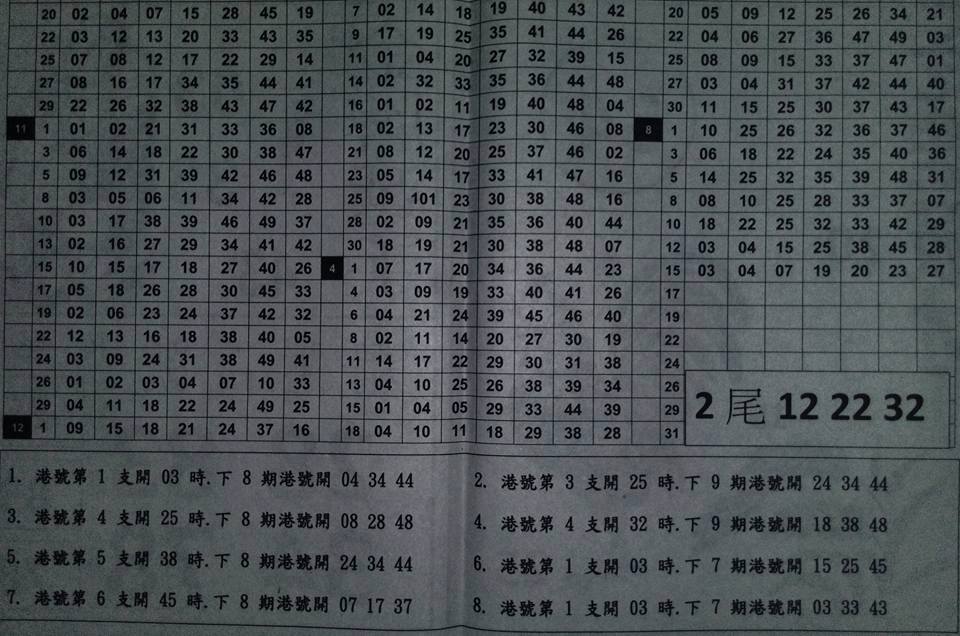 20 02 04 07 15 28 45 19 7 02 14 18 19 40 43 42 20 05 09 12 25 26 34 21
22 03 12 13 20 33 43 35 9 17 19 25 35 41 44 26 22 04 06 27 36 47 49 03
25 07 08 12 17 22 29 14 11 01 04 20 27 32 39 15 25 08 09 15 33 37 47 01
27 08 16 17 34 35 44 41 14 02 32 33 35 36 44 48 27 03 04 31 37 42 44 40
29 22 26 32 38 43 47 42 16 01 02 11 19 40 48 04 30 11 15 25 30 37 43 17
11 1 01 02 21 31 33 36 08 18 02 13 17 23 30 46 08 8 1 10 25 26 32 36 37 46
3 06 14 18 22 30 38 47 21 08 12 20 25 37 46 02 3 06 18 22 24 35 40 36
5 09 12 31 39 42 46 48 23 05 14 17 33 41 47 16 5 14 25 32 35 39 48 31
8 03 05 06 11 34 42 28 25 09 101 23 30 38 48 16 8 08 10 25 28 33 37 07
10 03 17 38 39 46 49 37 28 02 09 21 35 36 40 44 10 18 22 25 32 33 42 29
13 02 16 27 29 34 41 42 30 18 19 21 30 38 48 07 12 03 04 15 25 38 45 28
15 10 15 17 18 27 40 26 4 1 07 17 20 34 36 44 23 15 03 04 07 19 20 23 27
17 05 18 26 28 30 45 33 4 03 09 19 33 40 41 26 17
19 02 06 23 24 37 42 32 6 04 21 24 39 45 46 40 19
22 12 13 16 18 38 40 05 8 02 11 14 20 27 30 19 22
24 03 09 24 31 38 49 41 11 14 17 22 29 30 31 38 24
26 01 02 03 04 07 10 33 13 04 10 25 26 38 39 34 26
29 04 11 18 22 24 49 25 15 01 04 05 29 33 44 39 29
12 1 09 15 18 21 24 37 16 18 04 10 11 18 29 38 28 31
2 尾 12 22 32
1. 港號第 1 支開 03 時.下 8 期港號開 04 34 44
2. 港號第 3 支開 25 時.下 9 期港號開 24 34 44
3. 港號第 4 支開 25 時.下 8 期港號開 08 28 48
4. 港號第 4 支開 32 時.下 9 期港號開 18 38 48
5. 港號第 5 支開 38 時.下 8 期港號開 24 34 44
6. 港號第 1 支開 03 時.下 7 期港號開 15 25 45
7. 港號第 6 支開 45 時.下 8 期港號開 07 17 37
8. 港號第 1 支開 03 時.下 7 期港號開 03 33 43